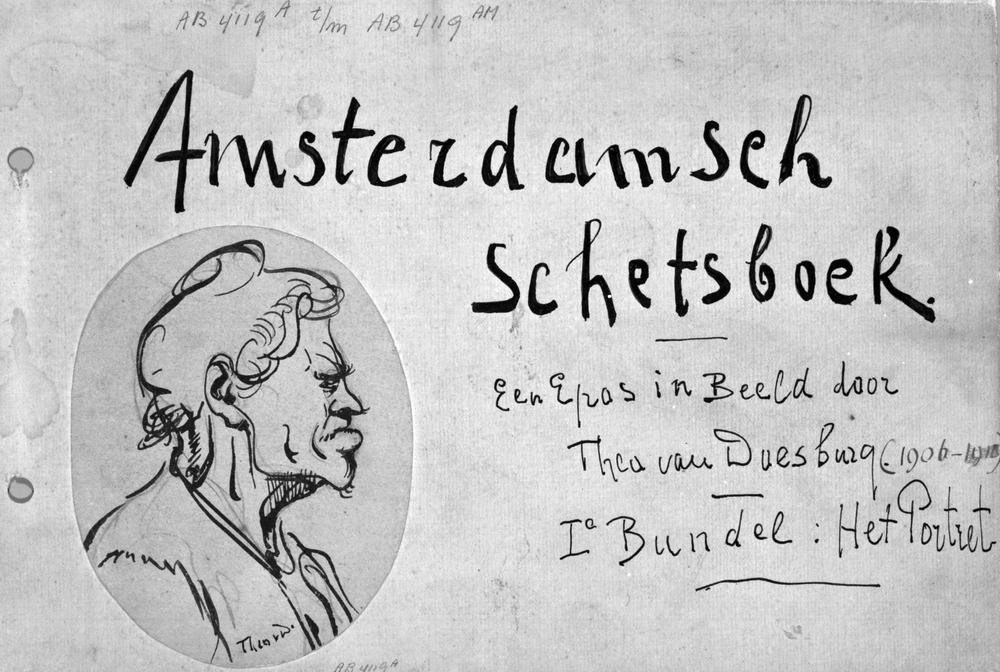 AB 4119 A t/m AB 4119 AM
Amsterdamsch
Schetsboek.
Een Epos in Beeld door
Theo van Doesburg (1906-
Iª Bundel: Het Portret
Theo v D.
AB 4119 A